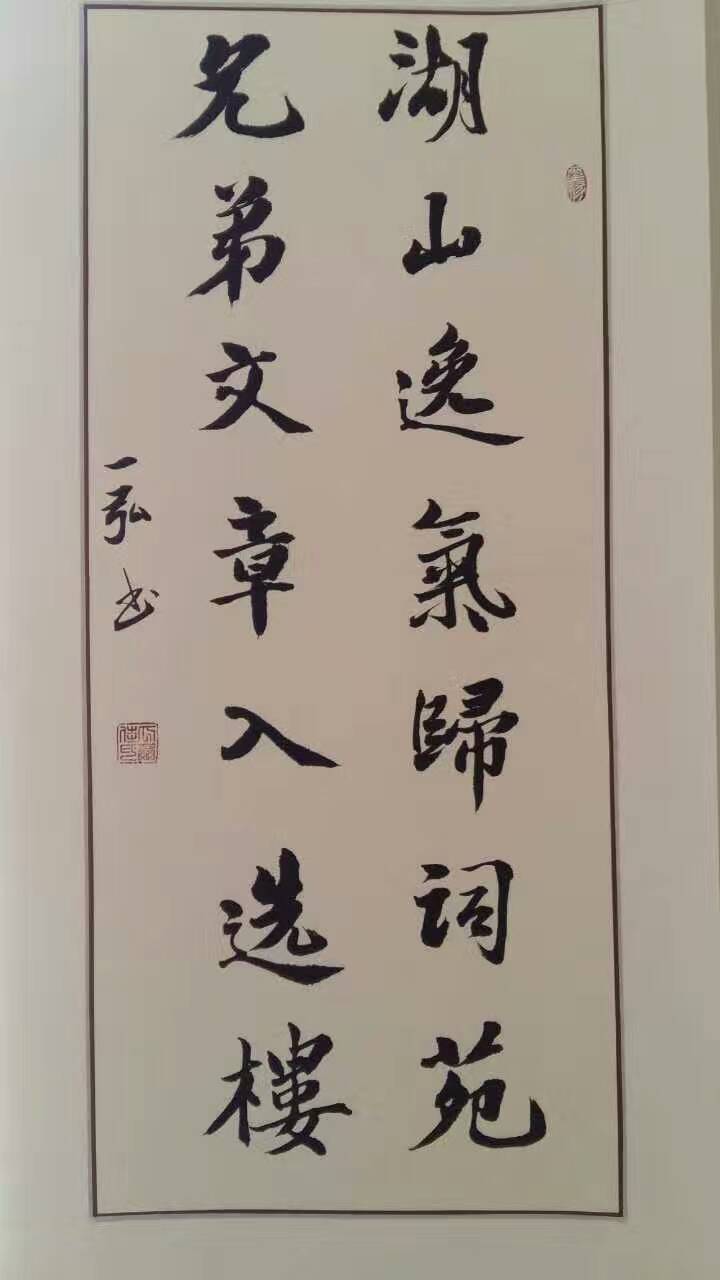 湖山逸氣歸詞苑
兄弟文章入选樓
一弘书